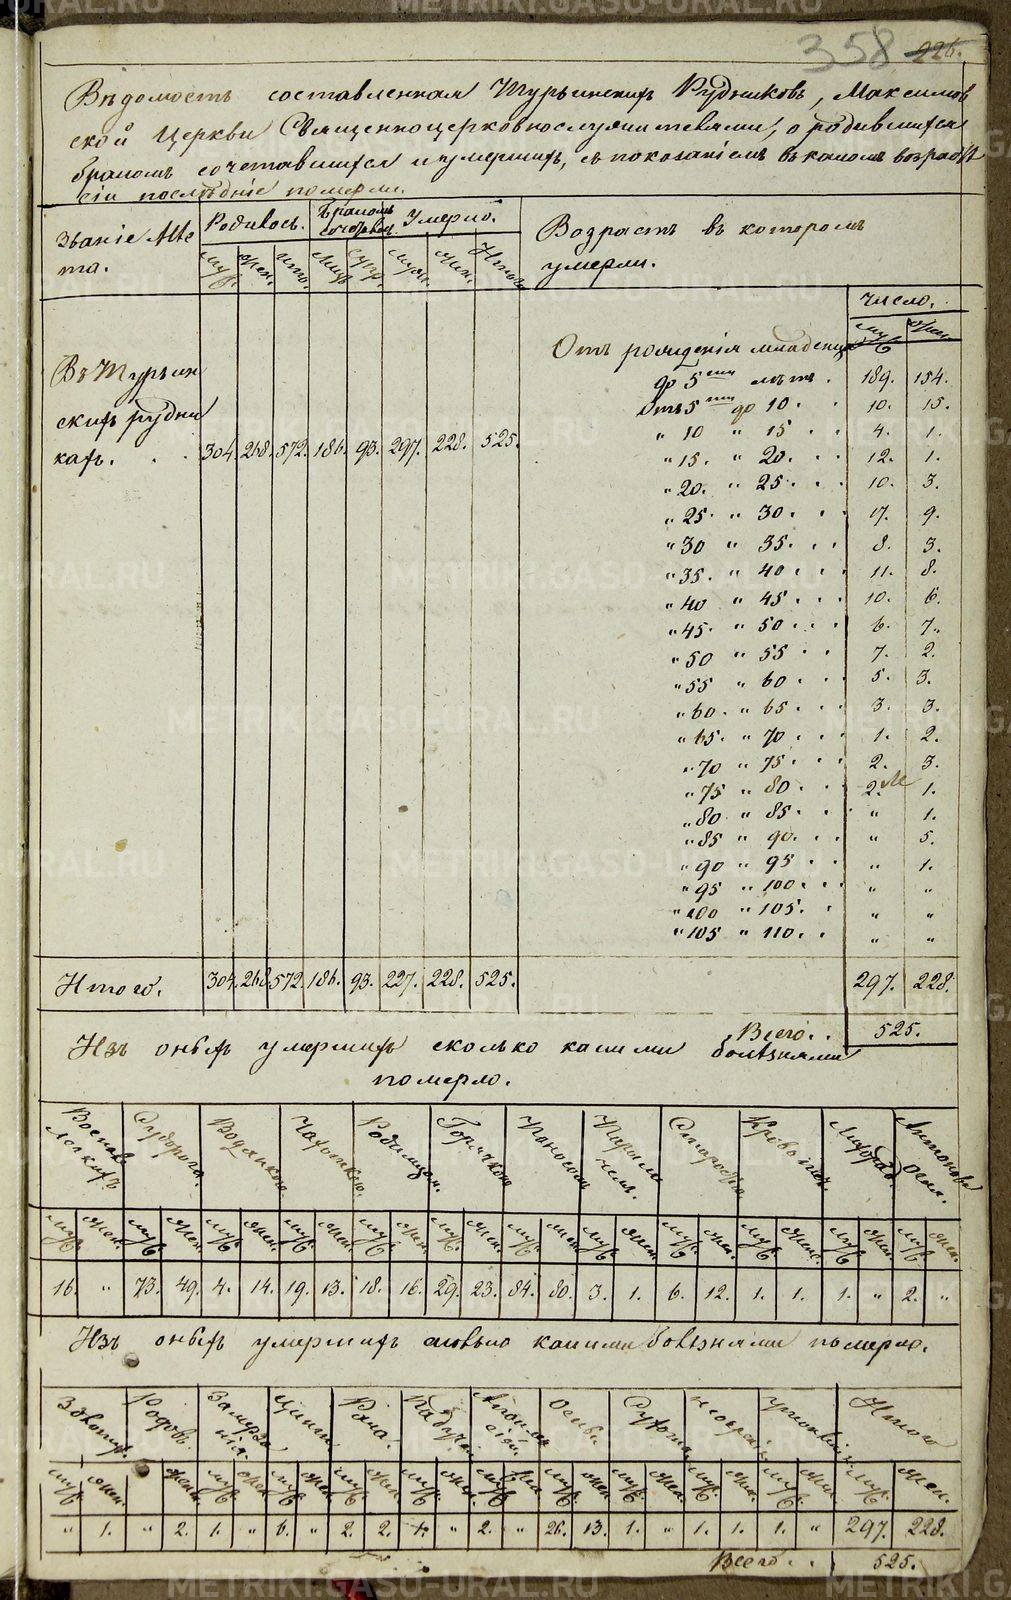 358 226.
Вѣдомость составленная Турьинскихъ Рудниковъ, Максимов
ской Церкви Священноцерковнослужителями, о родившихся
бракомъ сочетавшихся и умершихъ, съ показаніемъ въ какомъ возрастѣ
сіи послѣдніе померли.
Званіе Мѣс
та.
Родилось. Бракомъ сочетавш. Умерло. Возрастъ въ которомъ
умерли.
муж. жен. итого. муж. жен. Итого
Число.
муж. жен.
Отъ рожденія младенц
до 5 ти лѣтъ. 189. 154.
Отъ 5 ти до 10. 10. 15.
" 10 " 15 4. 1.
" 15. " 20. 12. 1.
" 20. " 25. 10. 3.
" 25. " 30. 17. 9.
" 30 " 35. 8. 3.
" 35. " 40 11. 8.
" 40 " 45 10. 6.
" 45. " 50 6. 7.
" 50 " 55 7. 2.
" 55 " 60 5. 3.
" 60. " 65 3. 3.
" 65. " 70 1. 2.
" 70 " 75 2. 3.
" 75 " 80 2. 1.
" 80 " 85 " 1.
" 85 " 90. " 5.
" 90 " 95 " 1.
" 95 " 100 " "
" 100 " 105. " "
" 105 " 110. " "
Въ Турьин
скихъ рудни
кахъ. 304. 268. 572. 186. 93. 297. 228. 525.
Итого. 304. 268. 572. 186. 93. 227. 228. 525. 297. 228.
Всего. 525.
Изъ оныхъ умершихъ сколько какими болѣзнями
померло.
Воспою Судорога. Водянкою Чахоткою. Родимцом. Горячкою Поносом Старостью Антонова
огня.
муж. жен. муж. жен. муж. жен. муж. жен. муж. жен. муж. жен. муж. жен. муж. жен. муж. жен. муж. жен. муж. жен. муж. жен.
16. " 73. 49. 4. 14. 19. 13. 18. 16. 29. 23. 84. 80. 3. 1. 6. 12. 1. 1. 1. " 2. "
Изъ оныхъ умершихъ сколько какими болѣзнями померло.
Родов. Замерза
нія. Цынги Рака. Оспы. Итого
муж. жен. жен. муж. жен. муж. жен. муж. жен. муж. жен. муж. муж. жен. муж. жен. муж. жен. муж. жен. муж. жен.
" 1. " 2. 1. " 6. " 2. 2. 1. " 2. " 26. 13. 1. " 1. 1. 1. " 297. 228.
Всего. 525.
METRIKI.GASO-URAL.RU